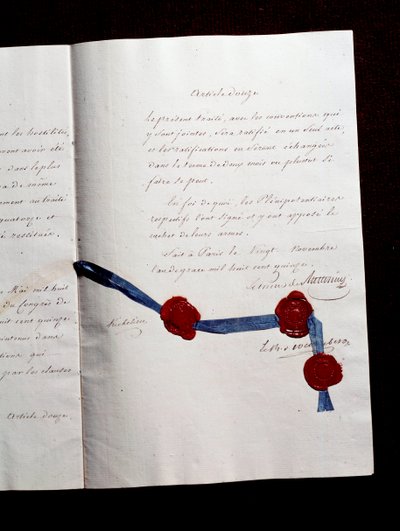 nt les hostilités,
ront avoir été
dans le plus
a de même
ement au traité
quatorze et
é restituée.
Mai mil huit
du Congrès de
uit cent quinze
intenus dans
tions qui
par les clauses
Article douze.
Article douze
Le présent traité, avec les conventions qui
y sont jointes, sera ratifié en un seul acte,
et les ratifications en seront échangées
dans le terme de deux mois ou plutôt si
faire se peut.
En foi de quoi, les Plénipotentiaires
respectifs l'ont signé et y ont apposé le
cachet de leurs armes.
Fait à Paris le Vingt Novembre
l'an de grace mil huit cent quinze.
Le Prince de Metternich
Richelieu